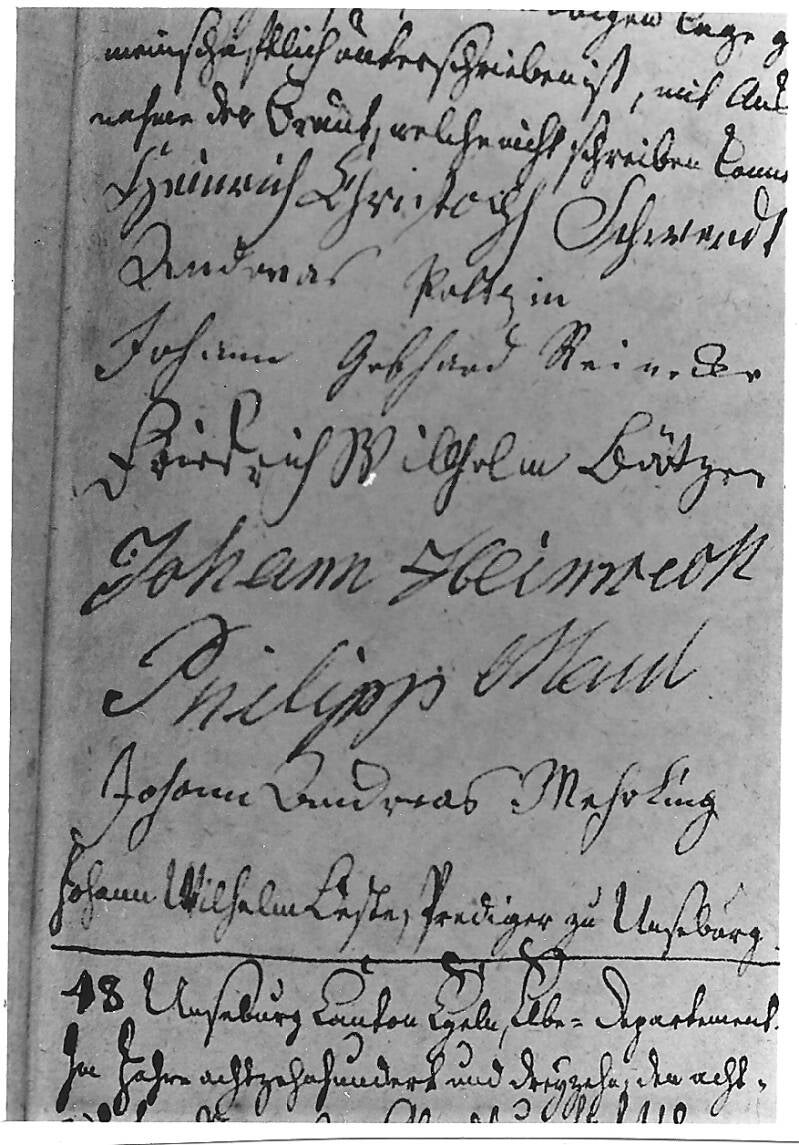 obigen Tage ge
meinschaftlich unterschrieben ist, mit Aus
nahme der Braut, welche nicht schreiben konn
Heinrich Christoph Schwendt
Andreas Poltzin
Johann Gebhard Reinecke
Friedrich Wilhelm Bötzer
Johann Heinrich
Philipp Maul
Johann Andreas Mehrling
Johann Wilhelm Leste, Prediger zu Unseburg
48 Unseburg Canton Egeln, Elbe-Departement.
Im Jahre achtzehnhundert und dreyzehn, den acht-